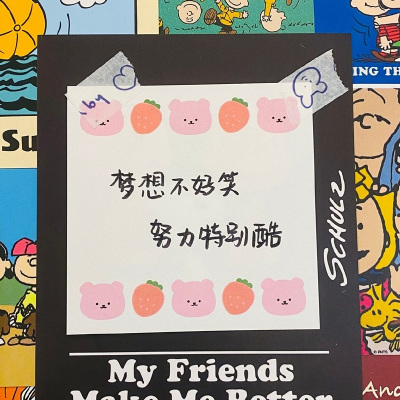 ING TH
Su
梦想不好笑
努力特别酷
SCHULZ
My Friends
Make Me Better
And